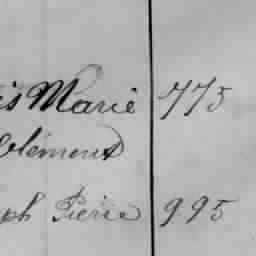 is Marie 775
Clément
ph Pierre 995